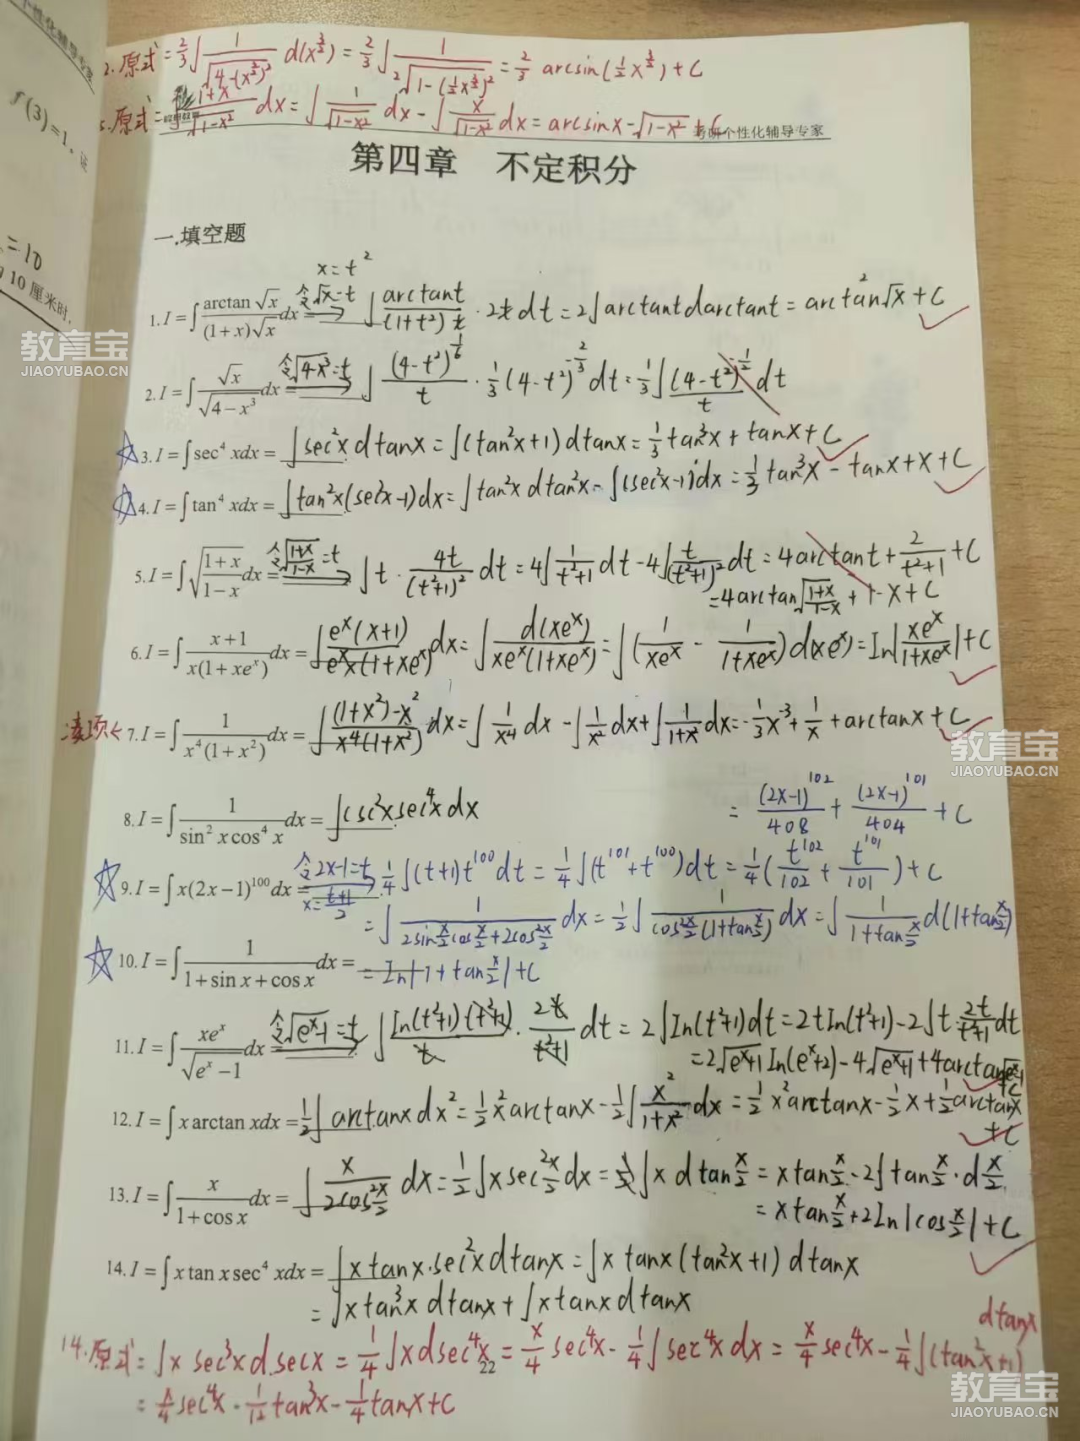 个性化辅导专家
f(3)=1。证
=10
10厘米时,
2. 原式=\frac{2}{3}∫\frac{1}{\sqrt{4-(x^{\frac{3}{2}})^2}} d(x^{\frac{3}{2}}) = \frac{2}{3}∫\frac{1}{2\sqrt{1-(\frac{1}{2}x^{\frac{3}{2}})^2}} = \frac{2}{3} arcsin(\frac{1}{2}x^{\frac{3}{2}})+C
5. 原式=∫\frac{1+x}{\sqrt{1-x^2}}dx = ∫\frac{1}{\sqrt{1-x^2}} dx - ∫\frac{x}{\sqrt{1-x^2}}dx = arcsinx-\sqrt{1-x^2}+C
考研个性化辅导专家
第四章 不定积分
一.填空题
x=t^2
1.I=∫\frac{arctan\sqrt{x}}{(1+x)\sqrt{x}}dx= 令\sqrt{x}=t ∫\frac{arctant}{(1+t^2)t}·2tdt=2∫arctantdarctant=arctan^2\sqrt{x}+C
教育宝
JIAOYUBAO.CN
2.I=∫\frac{\sqrt{x}}{\sqrt{4-x^3}}dx= 令\sqrt{4-x^3}=t ∫\frac{(4-t^2)^{\frac{1}{6}}}{t}·\frac{1}{3}(4-t^2)^{-\frac{2}{3}}dt=\frac{1}{3}∫\frac{(4-t^2)^{-\frac{1}{2}}}{t}dt
☆3.I=∫sec^4 xdx= ∫sec^2x dtanx=∫(tan^2x+1)dtanx=\frac{1}{3}tan^3x+tanx+C
☆4.I=∫tan^4 xdx= ∫tan^2x(sec^2x-1)dx=∫tan^2x dtan^2x-∫(sec^2x-1)dx=\frac{1}{3}tan^3x-tanx+x+C
5.I=∫\sqrt{\frac{1+x}{1-x}}dx= 令\sqrt{\frac{1+x}{1-x}}=t ∫t·\frac{4t}{(t^2+1)^2}dt=4∫\frac{1}{t^2+1}dt-4∫\frac{t}{(t^2+1)^2}dt=4arctant+\frac{2}{t^2+1}+C
=4arctan\sqrt{\frac{1+x}{1-x}}+1-x+C
6.I=∫\frac{x+1}{x(1+xe^x)}dx= ∫\frac{e^x(x+1)}{e^x x(1+xe^x)}dx=∫\frac{d(xe^x)}{xe^x(1+xe^x)}=∫(\frac{1}{xe^x}-\frac{1}{1+xe^x})d(xe^x)=In|\frac{xe^x}{1+xe^x}|+C
凑项< 7.I=∫\frac{1}{x^4(1+x^2)}dx= ∫\frac{(1+x^2)-x^2}{x^4(1+x^2)}dx=∫\frac{1}{x^4}dx-∫\frac{1}{x^2}dx+∫\frac{1}{1+x^2}dx=-\frac{1}{3}x^{-3}+\frac{1}{x}+arctanx+C
教育宝
JIAOYUBAO.CN
8.I=∫\frac{1}{sin^2 xcos^4 x}dx= ∫csc^2xsec^4xdx
=\frac{(2x-1)^{102}}{408}+\frac{(2x-1)^{101}}{404}+C
☆9.I=∫x(2x-1)^{100}dx= 令2x-1=t x=\frac{t+1}{2} \frac{1}{4}∫(t+1)t^{100}dt=\frac{1}{4}∫(t^{101}+t^{100})dt=\frac{1}{4}(\frac{t^{102}}{102}+\frac{t^{101}}{101})+C
=∫\frac{1}{2sin\frac{x}{2}cos\frac{x}{2}+2cos^2\frac{x}{2}}dx=\frac{1}{2}∫\frac{1}{cos^2\frac{x}{2}(1+tan\frac{x}{2})}dx=∫\frac{1}{1+tan\frac{x}{2}}d(1+tan\frac{x}{2})
☆10.I=∫\frac{1}{1+sin x+cos x}dx= =In|1+tan\frac{x}{2}|+C
11.I=∫\frac{xe^x}{\sqrt{e^x-1}}dx= 令\sqrt{e^x-1}=t ∫\frac{In(t^2+1)·(t^2+1)}{t}·\frac{2t}{t^2+1}dt=2∫In(t^2+1)dt=2tIn(t^2+1)-2∫t·\frac{2t}{t^2+1}dt
=2\sqrt{e^x+1}In(e^x+2)-4\sqrt{e^x+1}+4arctan\sqrt{e^x-1}+C
12.I=∫x arctan xdx= \frac{1}{2}∫arctanxdx^2=\frac{1}{2}x^2arctanx-\frac{1}{2}∫\frac{x^2}{1+x^2}dx=\frac{1}{2}x^2arctanx-\frac{1}{2}x+\frac{1}{2}arctanx+C
13.I=∫\frac{x}{1+cos x}dx= ∫\frac{x}{2cos^2\frac{x}{2}}dx=\frac{1}{2}∫xsec^2\frac{x}{2}dx=∫x dtan\frac{x}{2}=xtan\frac{x}{2}-2∫tan\frac{x}{2}·d\frac{x}{2}
=xtan\frac{x}{2}+2In|cos\frac{x}{2}|+C
14.I=∫x tan x sec^4 xdx= ∫xtanx·sec^2xdtanx=∫x tanx(tan^2x+1)dtanx
=∫xtan^3x dtanx+∫xtanxdtanx
14.原式=∫x sec^3x d secx=\frac{1}{4}∫xdsec^4x=\frac{x}{4}sec^4x-\frac{1}{4}∫sec^4x dx=\frac{x}{4}sec^4x-\frac{1}{4}∫(tan^2x+1)dtanx
22
=\frac{x}{4}sec^4x-\frac{1}{12}tan^3x-\frac{1}{4}tanx+C
教育宝
JIAOYUBAO.CN